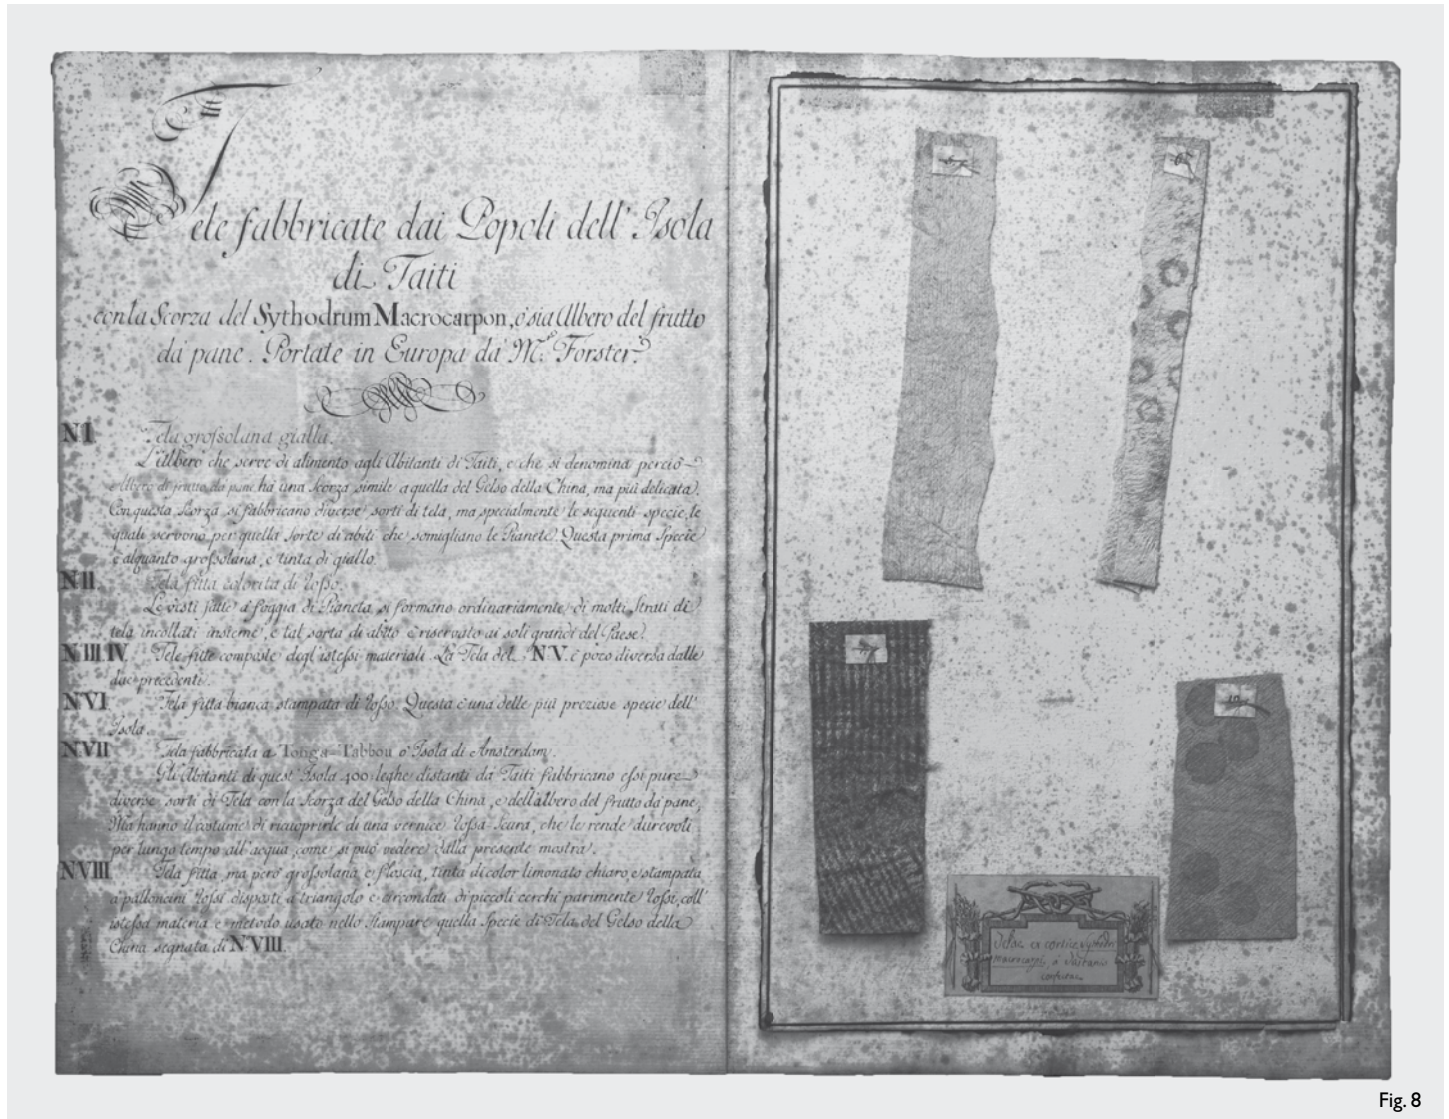 Tele fabbricate dai Popoli dell' Isola
di Taiti
con la Scorza del Sythodrum Macrocarpon, o sia Albero del frutto
da pane. Portate in Europa da M. Forster.
N I. Tela grossolana gialla.
L'Albero che serve di alimento agli Abitanti di Taiti, e che si denomina perciò
Albero di frutto da pane ha una scorza simile a quella del Gelso della China, ma più delicata.
Con questa scorza si fabbricano diverse sorti di tela, ma specialmente le seguenti specie, le
quali servono per quella sorte di abiti che somigliano le Pianete. Questa prima Specie
è alquanto grossolana, e tinta di giallo.
N II. Tela fitta colorita di rosso.
Le vesti fatte a foggia di Pianeta si formano ordinariamente di molti strati di
tela incollati insieme, e tal sorta di abito è riservato ai soli grandi del Paese.
N III IV. Tele fitte composte degl'istessi materiali. La Tela del N V. è poco diversa dalle
due precedenti.
N VI Tela fitta bianca stampata di rosso. Questa è una delle più preziose specie dell'
Isola.
N VII Tela fabbricata a Tonga-Tabbou o Isola di Amsterdam.
Gli Abitanti di quest'Isola 400 leghe distanti da Taiti fabbricano essi pure
diverse sorti di Tela con la scorza del Gelso della China, e dell'albero del frutto da pane,
Ma hanno il costume di ricuoprirle di una vernice rossa-scura, che le rende durevoli
per lungo tempo all'acqua, come si può vedere dalla presente mostra.
N VIII Tela fitta ma però grossolana e floscia, tinta di color limonato chiaro, e stampata
a palloncini rossi disposti a triangolo e circondati di piccoli cerchi parimente rossi, coll'
istessa materia e metodo usato nello stampare quella specie di Tela del Gelso della
China segnata di N VIII.
Telae ex cortice
macrocarpi, a Taitanis
confectae
Fig. 8